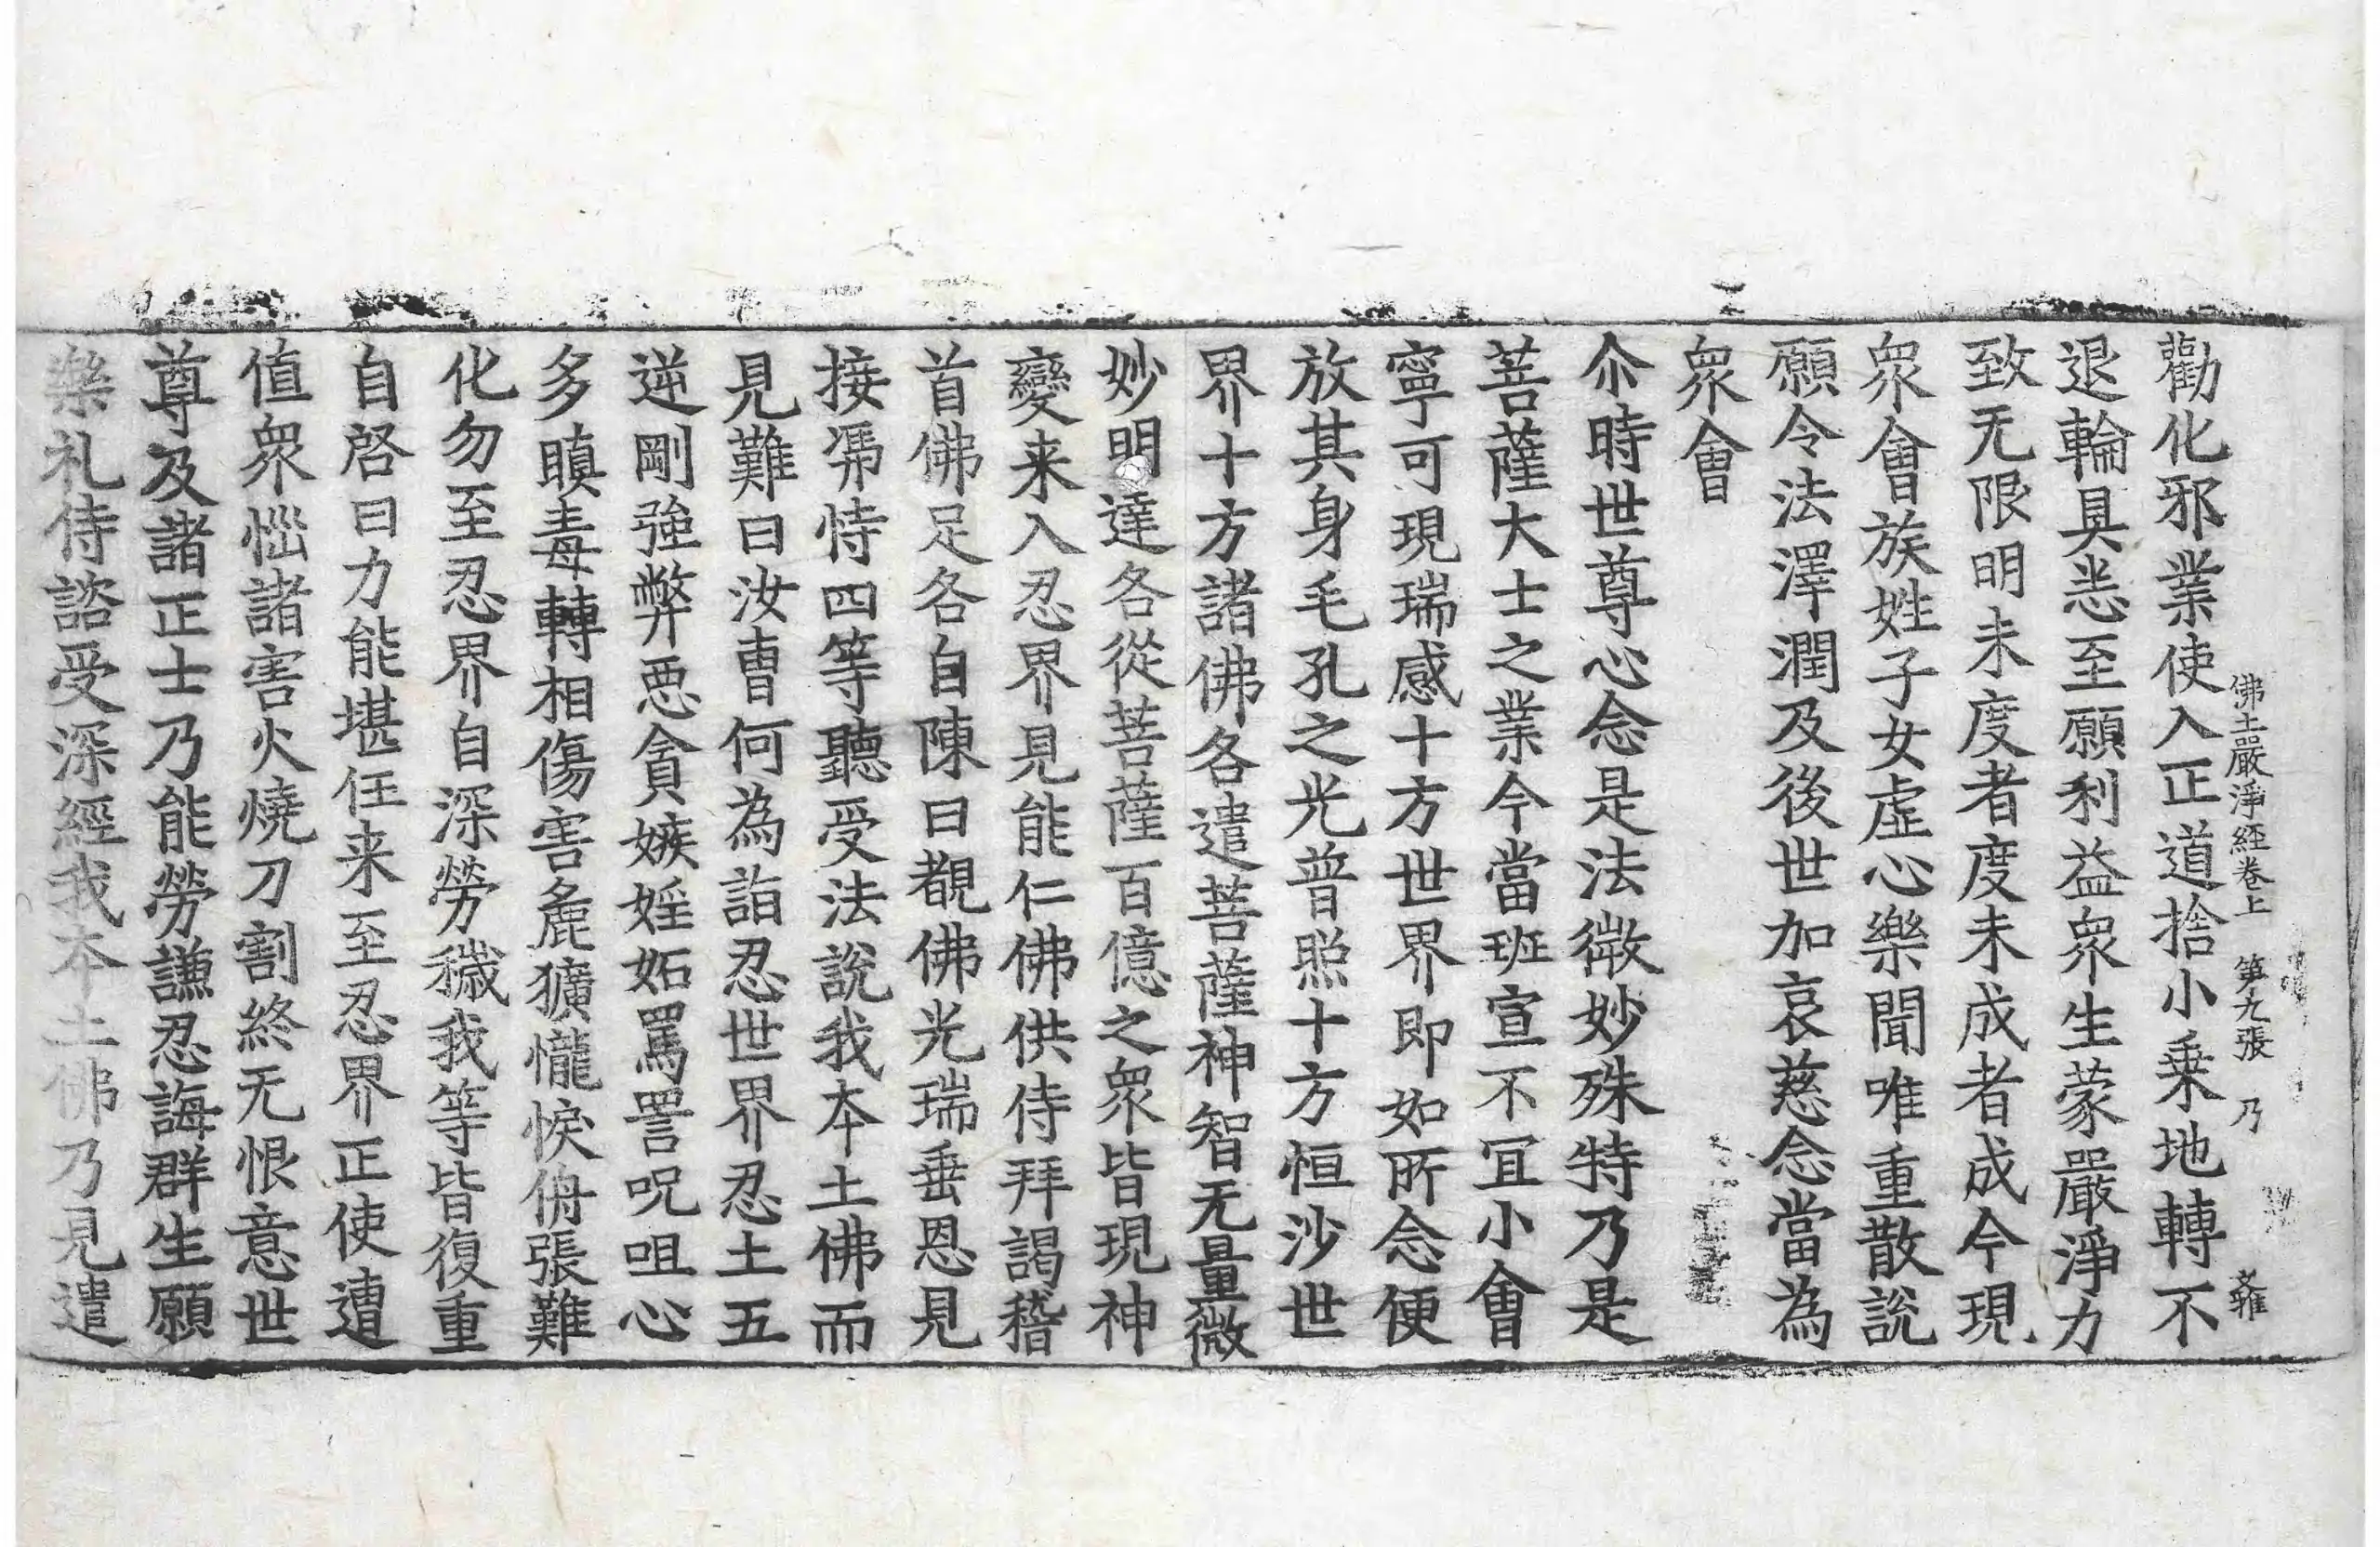 佛土嚴淨經卷上　第九張　乃
勸化邪業使入正道捨小乗地轉不
退輪具悉至願利益衆生蒙嚴淨力
致无限明未度者度未成者成今現
衆會族姓子女虛心樂聞唯重散說
願令法澤潤及後世加哀慈念當為
衆會
尒時世尊心念是法微妙殊特乃是
菩薩大士之業今當班宣不冝小會
寧可現瑞感十方世界即如所念便
放其身毛孔之光普照十方恒沙世
界十方諸佛各遣菩薩神智无量微
妙明達各從菩薩百億之衆皆現神
變来入忍界見能仁佛供侍拜謁稽
首佛足各自陳曰覩佛光瑞垂恩見
接馮恃四等聽受法說我本土佛而
見難曰汝曹何為詣忍世界忍土五
逆剛強弊惡貪嫉婬妬罵詈呪咀心
多瞋毒轉相傷害麁獷㦬悷侜張難
化勿至忍界自深勞穢我等皆復重
自啓曰力能堪任来至忍界正使遭
值衆惱諸害火燒刀割終无恨意世
尊及諸正士乃能勞謙忍誨群生願
樂礼侍諮受深經我本土佛乃見遣